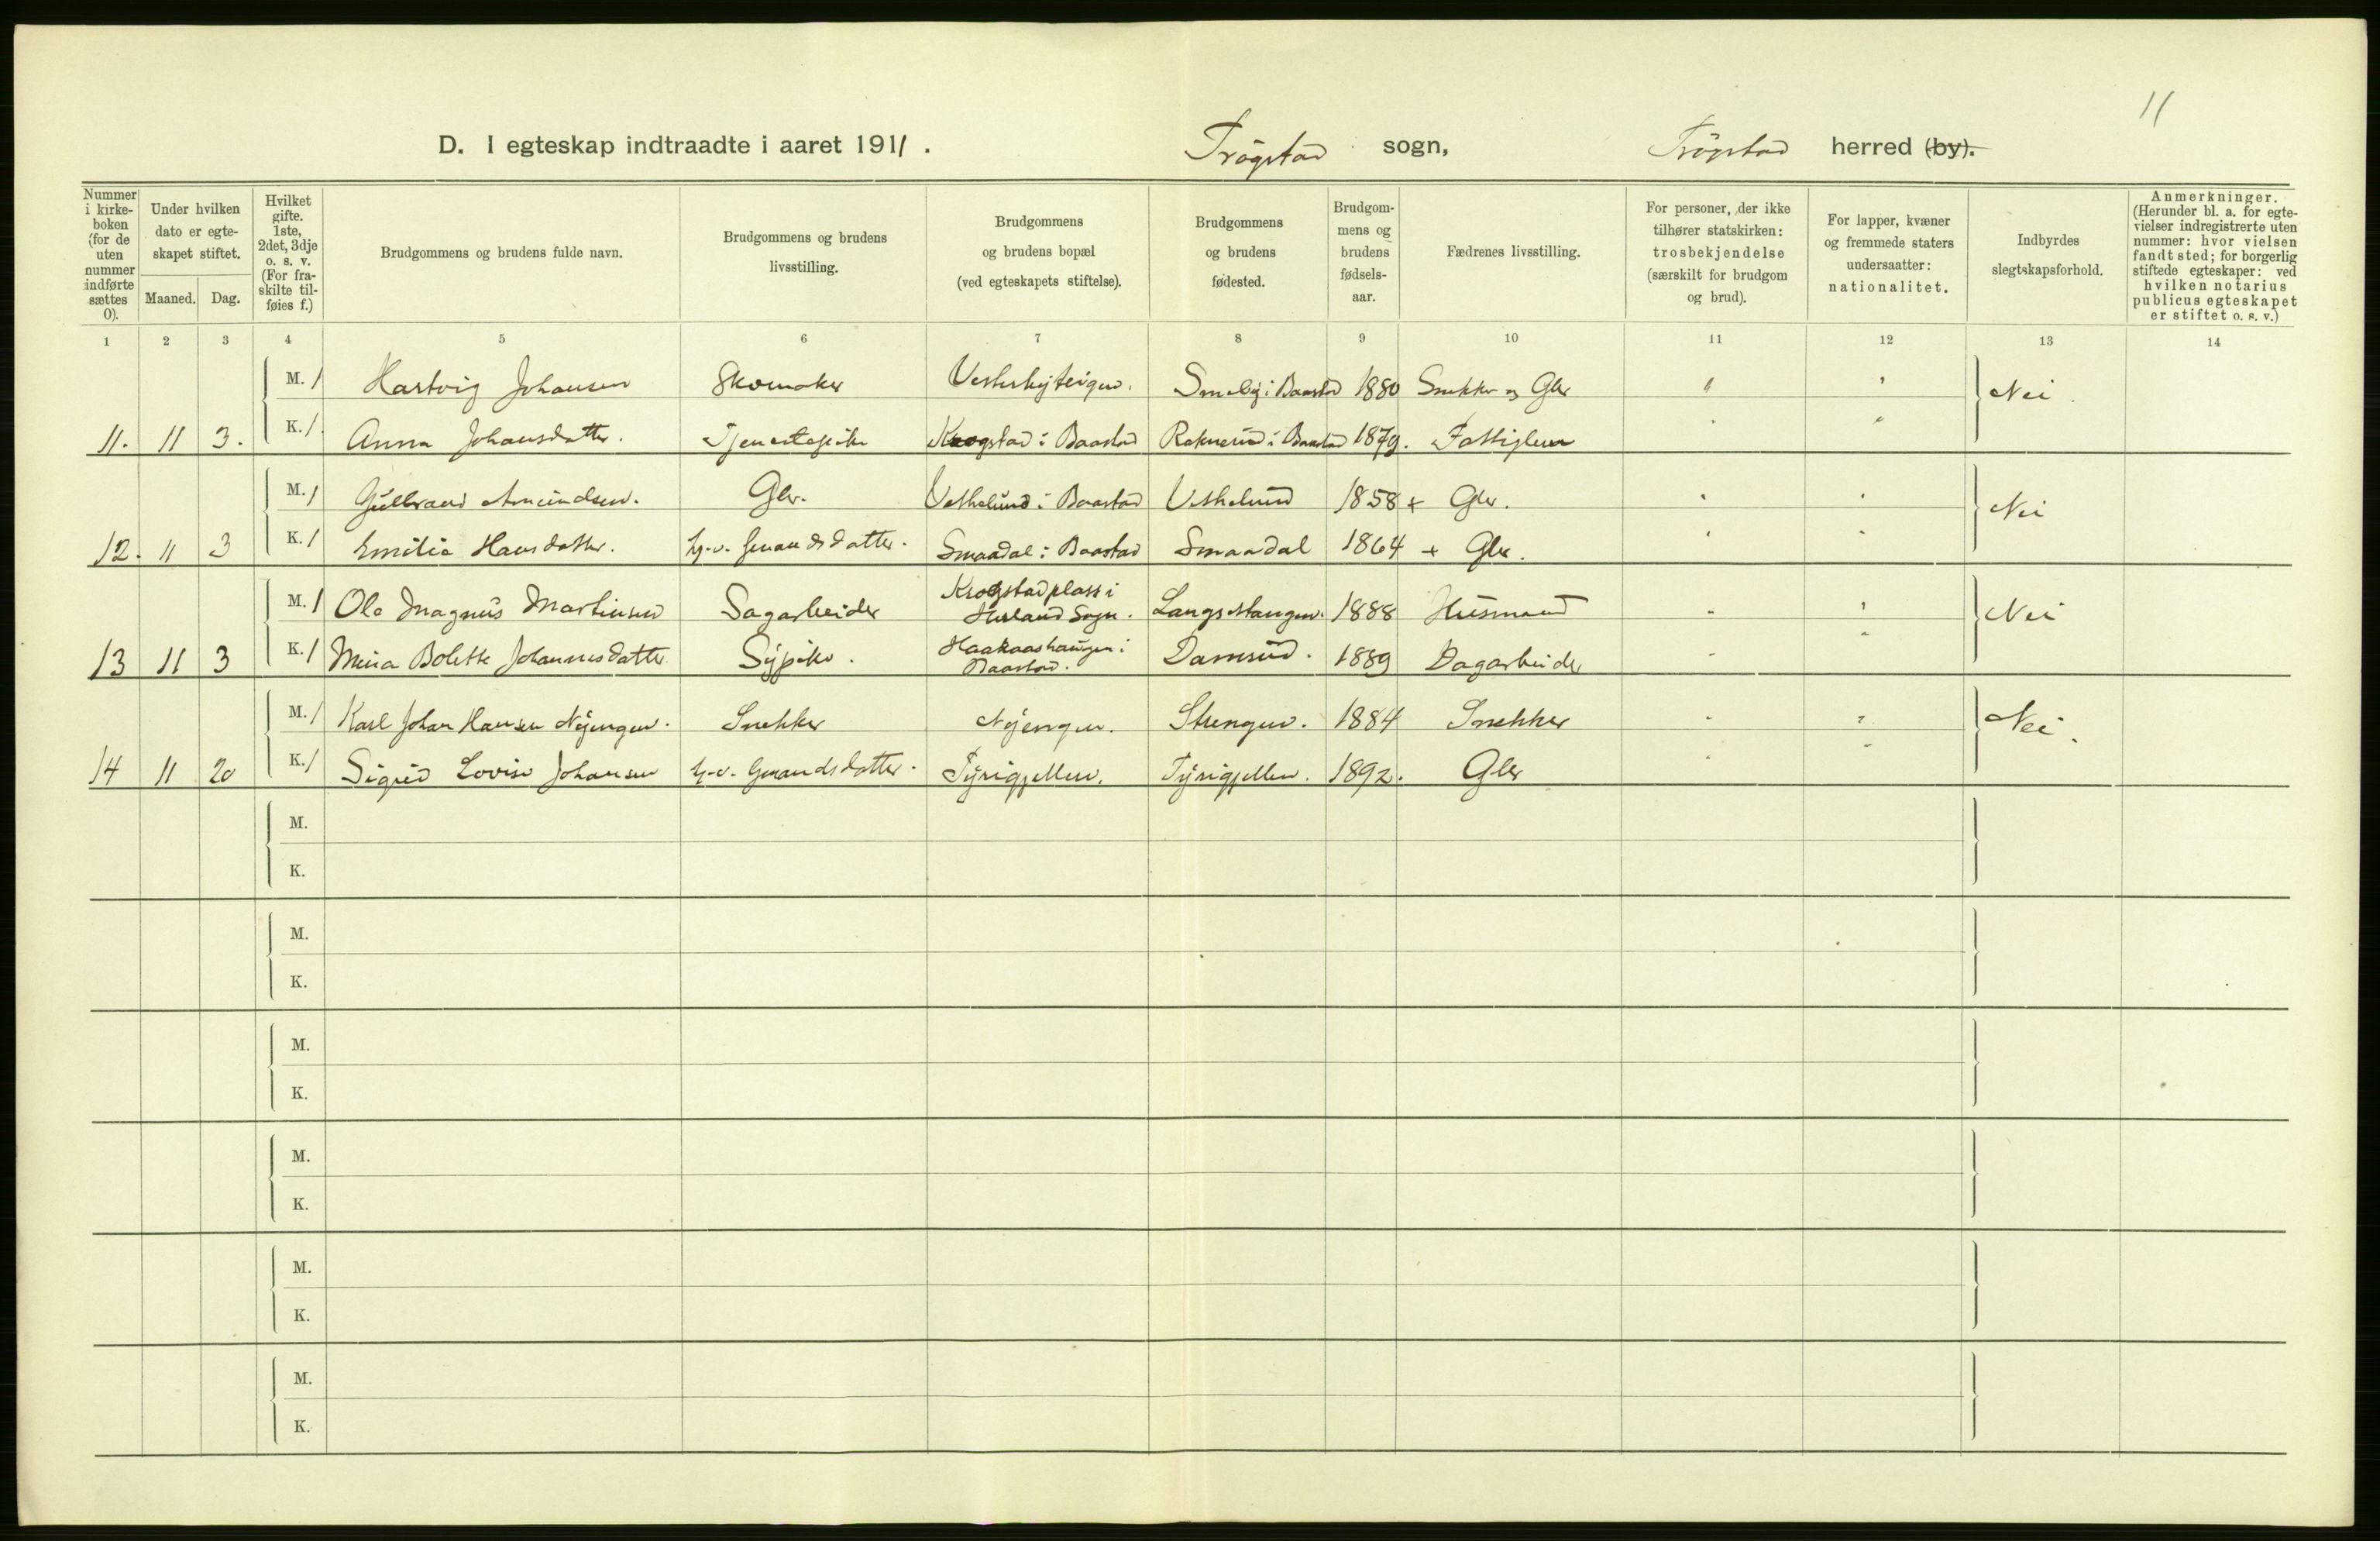 11
D. I egteskap indtraadte i aaret 1911. Trøgstad sogn, Trøgstad herred (by).
Nummer i kirke- boken (for de uten nummer indførte sættes 0).
Under hvilken dato er egte- skapet stiftet.
Maaned. Dag.
Hvilket gifte. 1ste, 2det, 3dje o. s. v. (For fra- skilte til- føies f.)
Brudgommens og brudens fulde navn.
Brudgommens og brudens livsstilling.
Brudgommens og brudens bopæl (ved egteskapets stiftelse).
Brudgommens og brudens fødested.
Brudgom- mens og brudens fødsels- aar.
Fædrenes livsstilling.
For personer, der ikke tilhører statskirken: trosbekjendelse (særskilt for brudgom og brud).
For lapper, kvæner og fremmede staters undersaatter: nationalitet.
Indbyrdes slegtskapsforhold.
Anmerkninger. (Herunder bl. a. for egte- vielser indregistrerte uten nummer: hvor vielsen fandt sted; for borgerlig stiftede egteskaper: ved hvilken notarius publicus egteskapet er stiftet o. s. v.)
1 2 3 4 5 6 7 8 9 10 11 12 13 14
M. 1 Hartvig Johansen Skomaker 1880 Snekker og Gbr " " Nei
11. 11 3. K. 1 Anna Johansdatter. Tjenestepike Krogstad i Baastad Raknerud i Baastad 1879. Fattiglem " "
M. 1 Gulbrand Amundsen. Gbr. Veskelund i Baastad Veskelund 1858 + Gbr. " " Nei
12. 11 3 K. 1 Emilie Hansdatter. Smaadal i Baastad Smaadal 1864 + Gbr. " "
M. 1 Ola Magnus Martinsen Sagarbeider Krogstadplass i Herland Sogn. Langsetangen. 1888 Husmand " " Nei
13 11 3 K. 1 Mina Bolette Johannesdatter Sypike. Haakaashaugen i Baastad. Damsud. 1889 Dagarbeider " "
M. 1 Karl Johan Hansen Nyengen. Snekker Nyengen. Strengen. 1884 Snekker " " Nei.
14 11 20 K. 1 Sigrid Lovise Johansen Tyrigjellen. Tyrigjellen. 1892. Gbr " "
M.
K.
M.
K.
M.
K.
M.
K.
M.
K.
M.
K.